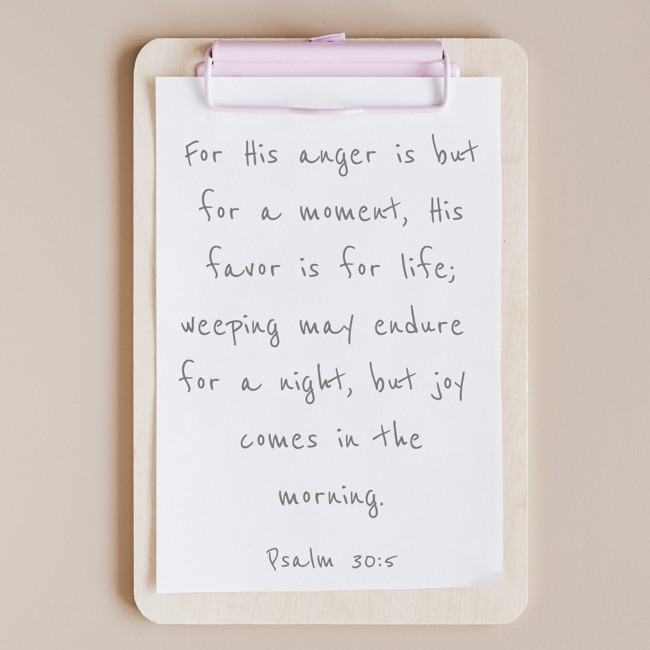 For His anger is but
for a moment, His
favor is for life;
weeping may endure
for a night, but joy
comes in the
morning.
Psalm 30:5